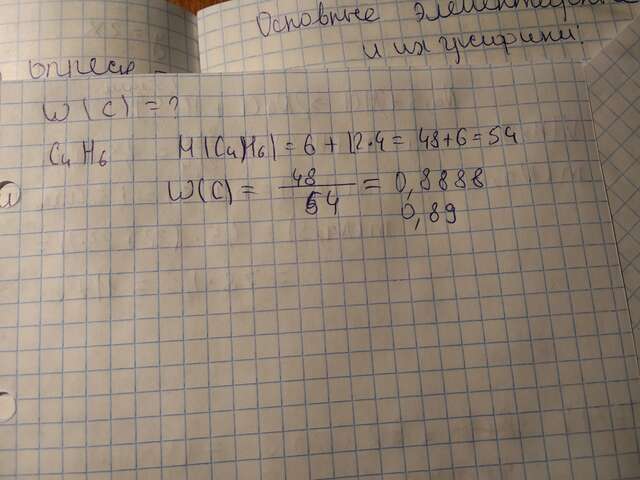 Основные элементарные
и их графики!
W(C) = ?
C4H6 M(C4H6) = 6 + 12·4 = 48+6 = 54
W(C) = 48/54 = 0,8888
0,89